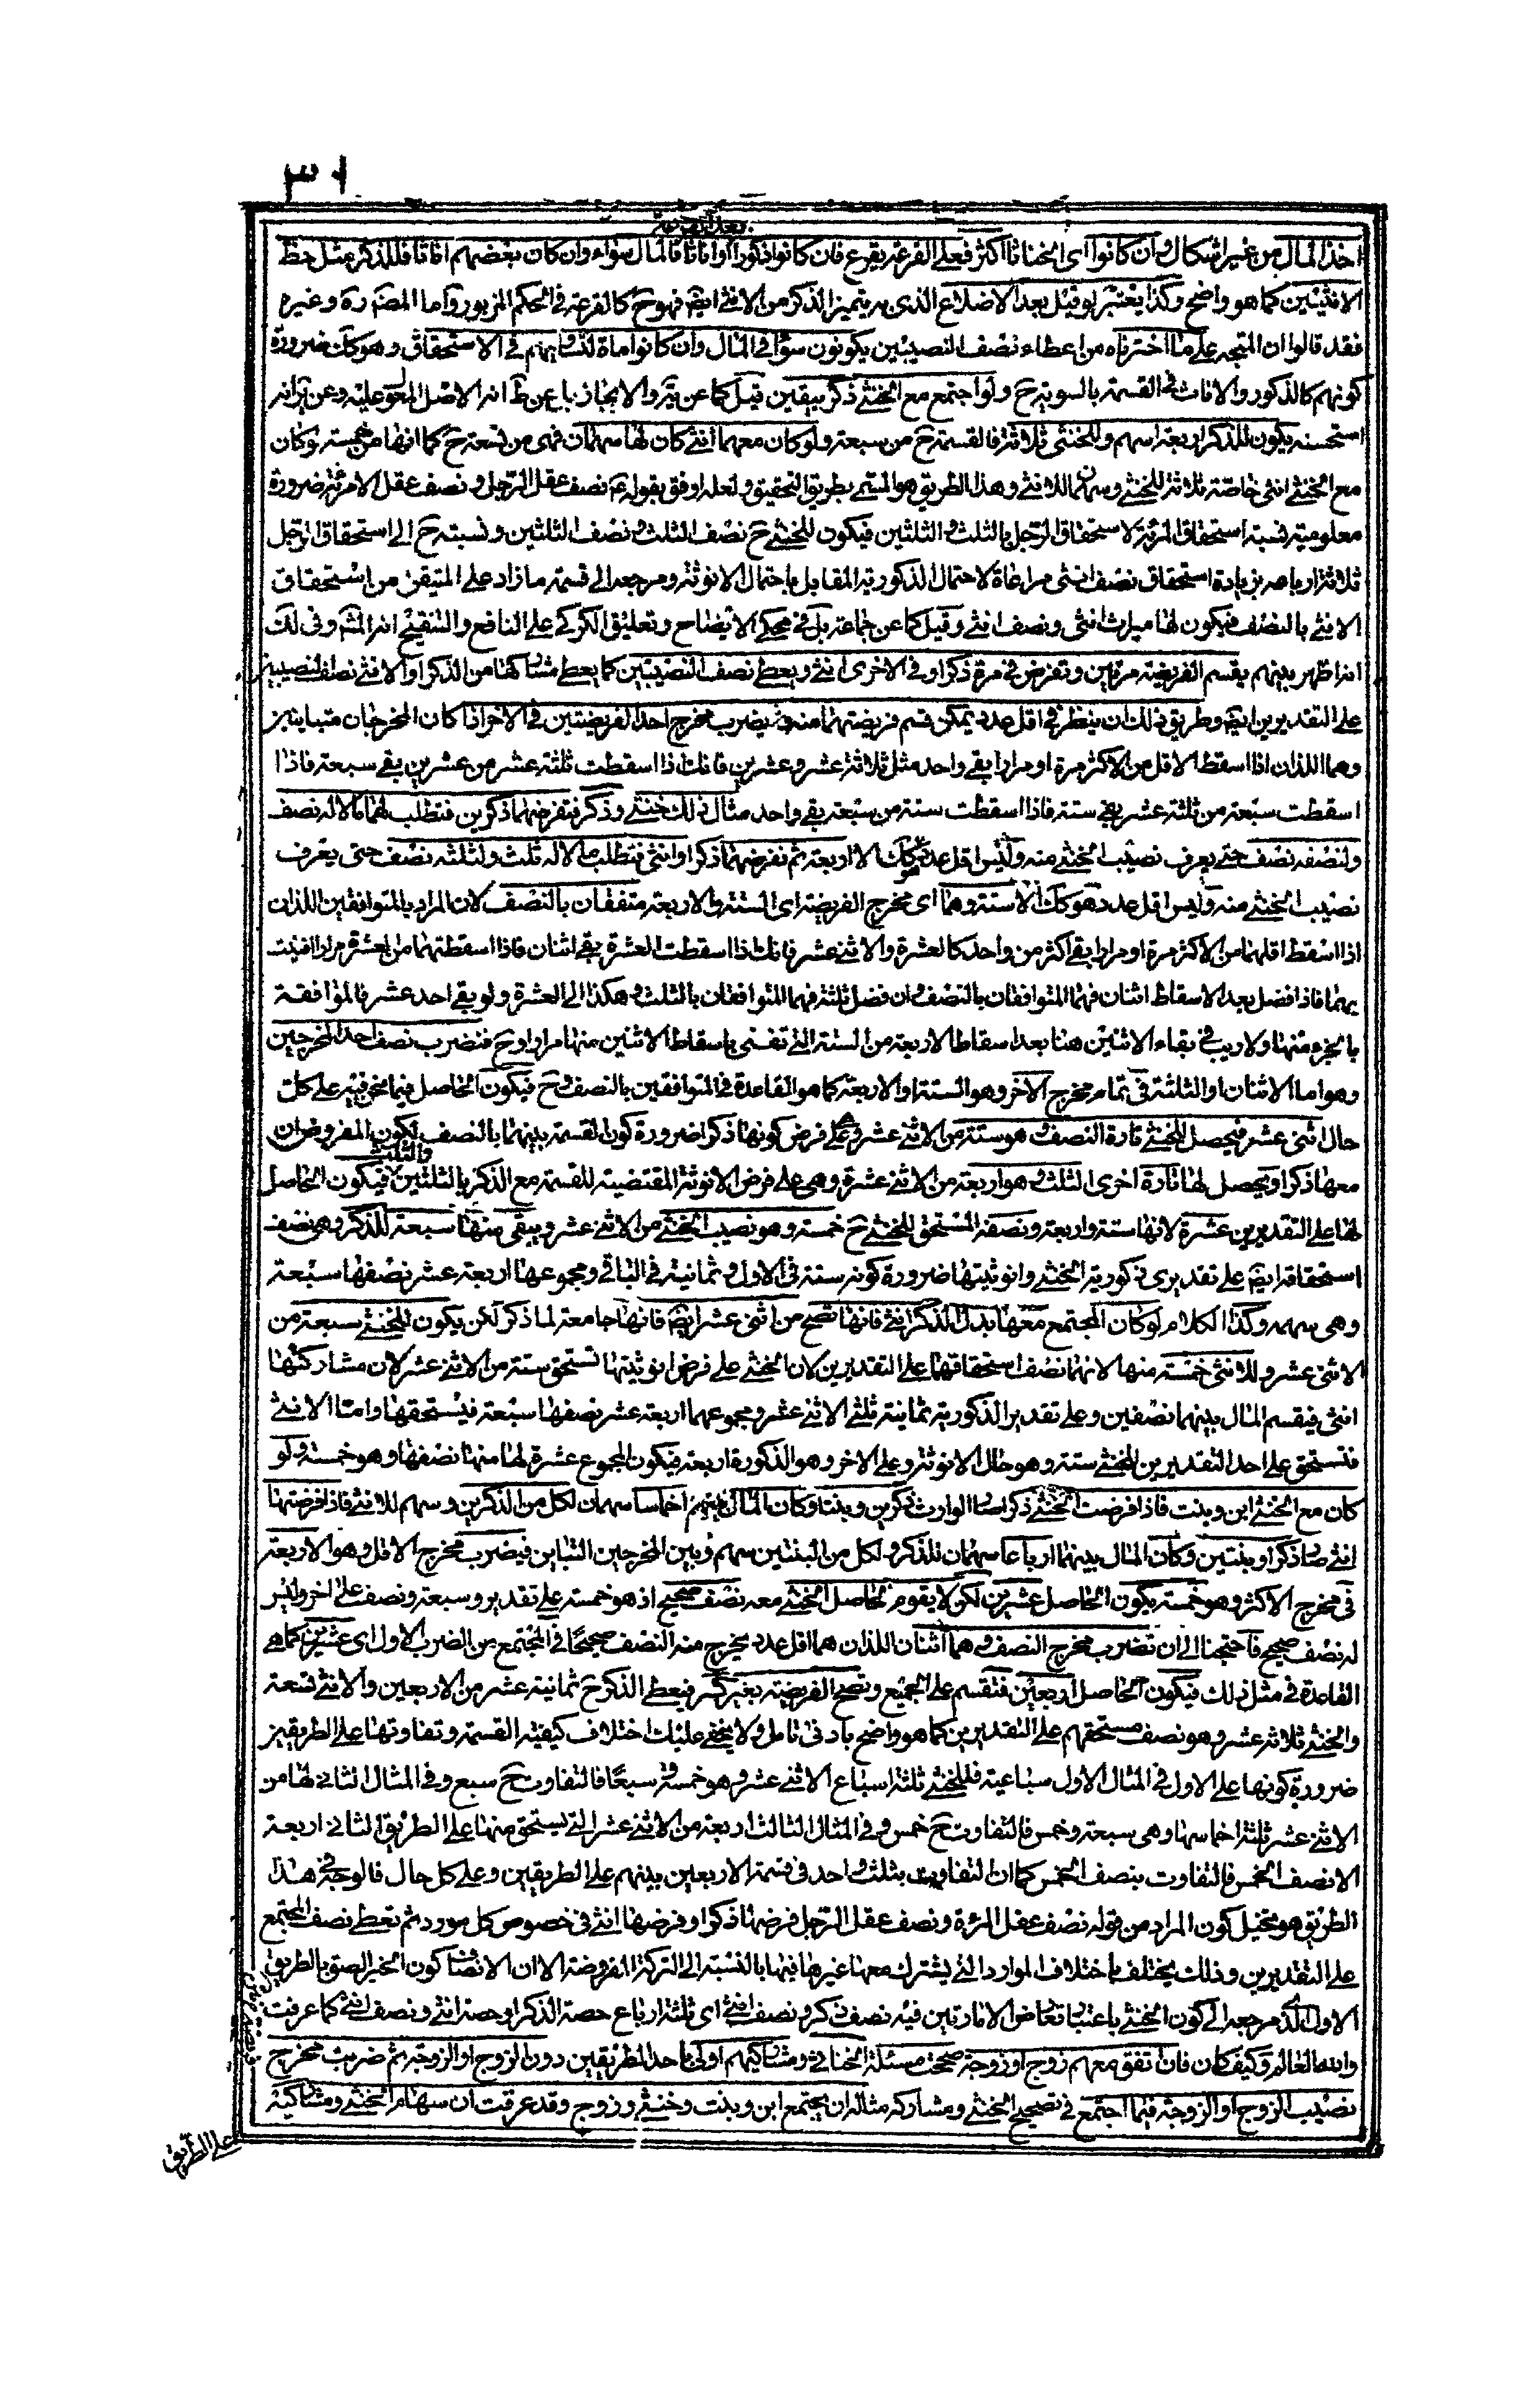 ٣١
اخذ المال من غير اشكال وان كانوا اى الخناثا اكثر فعلى القرعة يقرع فان كانوا ذكورا او اناثا فالمال سواء وان كان بعضهم اناثا فللذكر مثل حظ
الانثيين كما هو واضح وكذا يعتبر لو قيل بعد الاضلاع الذى به يتميز الذكر من الانثى ايض فهو ح كالقرعة فى الحكم المزبور واما المص ره وغيره
فقد قالوا ان المتجه على ما اخترناه من اعطاء نصف النصيبين يكونون سواء فى المال وان كانوا مائة لتساويهم فى الاستحقاق وهو كك ضرورة
كونهم كالذكور والاناث فى القسمة بالسوية ح ولو اجتمع مع الخنثى ذكر بيقين قيل كما عن ية والايجاز بل عن ط انه الاصل المعول عليه وعن ير انه
استحسنه يكون للذكر اربعة اسهم وللخنثى ثلاثة فالقسمة ح من سبعة ولو كان معهما انثى كان لها سهمان فهى من تسعة ح كما انها من خمسة لو كان
مع الخنثى انثى خاصة ثلاثة للخنثى وسهمان للانثى وهذا الطريق هو المسمى بطريق التحقيق ولعله اوفق بقوله ع نصف عقل الرجل ونصف عقل الامرئة ضرورة
معلومية نسبة استحقاق المرئة لاستحقاق الرجل بالثلث والثلثين فيكون للخنثى ح نصف الثلث ونصف الثلثين ونسبته ح الى استحقاق الرجل
ثلاثة ارباعه بزيادة استحقاق نصف انثى مراعاة لاحتمال الذكورية المقابل باحتمال الانوثة ومرجعه الى قسمة ما زاد على المتيقن من استحقاق
الانثى بالنصف فيكون لها ميراث انثى ونصف انثى وقيل كما عن جماعة بل فى محكى الايضاح وتعليق الكركى على النافع والتنقيح انه المشه وفى لك
انه اظهر بينهم يقسم الفريضة مرتين وتفرض فى مرة ذكرا وفى الاخرى انثى ويعطى نصف النصيبين كما يعطى مشاركها من الذكر او الانثى نصف النصيبين
على التقديرين ايض وطريق ذلك ان ينظر فى اقل عدد يمكن قسم فريضتهما منه ثم يضرب مخرج احد الفريضتين فى الاخر اذا كان المخرجان متباينين
وهما اللذان اذا اسقط الاقل من الاكثر مرة او مرارا بقى واحد مثل ثلاثة عشر وعشرين فانك اذا اسقطت ثلثة عشر من عشرين بقى سبعة فاذا
اسقطت سبعة من ثلثة عشر بقى ستة فاذا اسقطت ستة من سبعة بقى واحد مثال ذلك خنثى وذكر نتفرضهما ذكرين فتطلب لهما مالا له نصف
ولنصفه نصف حتى يعرف نصيب الخنثى منه وليس اقل عدد هو كك الا اربعة ثم نفرضهما ذكرا وانثى فتطلب مالا له ثلث ولثلثه نصف حتى يعرف
نصيب الخنثى منه وليس اقل عدد هو كك الا ستة وهما اى مخرج الفريضة اى الستة والاربعة متفقان بالنصف لان المراد بالمتوافقين اللذان
اذا اسقط اقلهما من الاكثر مرة او مرارا بقى اكثر من واحد كالعشرة والاثنى عشر فانك اذا اسقطت العشرة بقى اثنان فاذا اسقطتهما من العشرة مرارا فنيت
بهما فاذا فضل بعد الاسقاط اثنان فهما المتوافقان بالنصف وان فضل ثلثة فهما المتوافقان بالثلث وهكذا الى العشرة ولو بقى احد عشر فالموافقة
بالجزء منهما ولا ريب فى بقاء الاثنين هنا بعد اسقاط الاربعة من الستة التى تفنى باسقاط الاثنين منها مرارا وح فتضرب نصف احد المخرجين
وهو اما الاثنان او الثلثة فى تمام مخرج الاخر وهو الستة او الاربعة كما هو القاعدة فى المتوافقين بالنصف وح فيكون الحاصل فيما نحن فيه على كل
حال اثنى عشر فيحصل للخنثى تارة النصف وهو ستة من الاثنى عشر وهى على فرض كونها ذكرا ضرورة كون القسمة بينهما بالنصف لكون المفروض ان
معها ذكرا ويحصل لها تارة اخرى الثلث وهو اربعة من الاثنى عشرة وهى على فرض الانوثة المقتضية للقسمة مع الذكر بالثلثين والثلث فيكون الحاصل
لها على التقديرين عشرة لانها ستة واربعة ونصفه المستحق للخنثى ح خمسة وهو نصيب الخنثى من الاثنى عشر ويبقى منها سبعة للذكر وهى نصف
استحقاقه ايض على تقديرى ذكورية الخنثى وانوثيتها ضرورة كونه ستة فى الاول وثمانية فى الثانى ومجموعها اربعة عشر نصفها سبعة
وهى سهمه وكذا الكلام لو كان المجتمع معها بدل الذكر انثى فانها تصح من اثنى عشر ايض فانها جامعة لما ذكر لكن يكون للخنثى سبعة من
الاثنى عشر وللانثى خمسة منها لانهما نصف استحقاقهما على التقديرين لان الخنثى على فرض انوثيتها تستحق ستة من الاثنى عشر لان مشاركتها
انثى فيقسم المال بينهما نصفين وعلى تقدير الذكورية ثمانية ثلثى الاثنى عشر ومجموعهما اربعة عشر نصفها سبعة فيستحقها واما الانثى
فتستحق على احد التقديرين للخنثى ستة وهو حال الانوثة وعلى الاخر وهو الذكورة اربعة فيكون المجموع عشرة لها منها نصفها وهو خمسة ولو
كان مع الخنثى ابن وبنت فاذا فرضت الخنثى ذكرا صار الوارث ذكرين وبنتا وكان المال بينهم اخماسا سهمان لكل من الذكرين وسهم للانثى فاذا فرضتها
انثى صار ذكرا وبنتين وكان المال بينهما ارباعا سهمان للذكر ولكل من البنتين سهم وبين المخرجين التباين فيضرب مخرج الاقل وهو الاربعة
فى مخرج الاكثر وهو خمسة يكون الحاصل عشرين لكن لا يقوم لحاصل الخنثى معه نصف صحيح اذ هو خمسة على تقدير وسبعة ونصف على اخر وليس
له نصف صحيح فاحتجنا الى ان تضرب مخرج النصف وهما اثنان اللذان هما اقل عدد يخرج منه النصف صحيحا فى المجتمع من الضرب الاول اى عشرين كما هى
القاعدة فى مثل ذلك فيكون الحاصل اربعين فتقسم على الجميع وتصح الفريضة بغير كسر فيعطى الذكر ح ثمانية عشر من الاربعين والانثى تسعة
والخنثى ثلاثة عشر وهو نصف مستحقهم على التقديرين كما هو واضح بادنى تامل ولا يخفى عليك اختلاف كيفية القسمة وتفاوتها على الطريقين
ضرورة كونها على الاول فى المثال الاول سباعية فللخنثى ثلثة اسباع الاثنى عشر وهو خمسة وسبعا فالتفاوت ح سبع وفى المثال الثانى لها من
الاثنى عشر ثلثة اخماسها وهى سبعة وخمس فالتفاوت ح خمس وفى المثال الثالث اربعة من الاثنى عشر التى تستحق منها على الطريق الثانى اربعة
الا نصف الخمس فالتفاوت بنصف الخمس كما ان التفاوت بثلث واحد فى قسمة الاربعين بينهم على الطريقين وعلى كل حال فالوجه فى هذا
الطريق هو تخيل كون المراد من قوله نصف عقل المرئة ونصف عقل الرجل فرضها ذكرا وفرضها انثى فى خصوص كل مورد ثم تعطى نصف المجتمع
على التقديرين وذلك يختلف باختلاف الموارد التى يشترك معها غيرها فيها بالنسبة الى التركة المفروضة الا ان الانصاف كون الخبر الصق بالطريق
الاول الذى مرجعه الى كون الخنثى باعتبار تعارض الامارتين فيه نصف ذكر ونصف انثى اى ثلثة ارباع حصة الذكر او حصة انثى ونصف انثى كما عرفت
والله العالم وكيف كان فان تفق معهم زوج او زوجة صححت مسئلة الخناثى ومشاركيهم اولا باحد الطريقين دون الزوج او الزوجة ثم ضربت مخرج
نصيب الزوج او الزوجة فيما اجتمع فى تصحيح الخنثى ومشاركه مثاله ان يجتمع ابن وبنت وخنثى وزوج وقد عرفت ان سهام الخنثى ومشاركيه
على الطريق